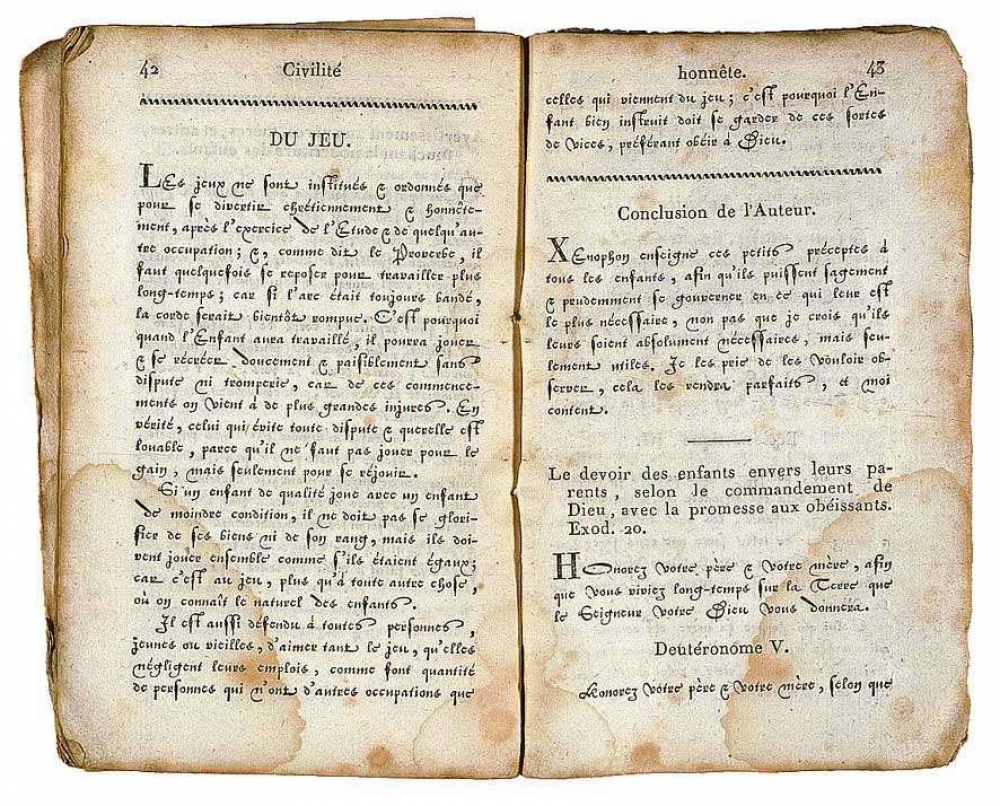 42 Civilité
DU JEU.
LEs jeux ne sont institués & ordonnés que
pour se divertir chrétiennement & honnête-
ment, après l'exercice de l'Etude & de quelqu'au-
tre occupation; &, comme dit le Proverbe, il
faut quelquefois se reposer pour travailler plus
long-temps; car si l'arc était toujours bandé,
la corde serait bientôt rompue. C'est pourquoi
quand l'Enfant aura travaillé, il pourra jouer
& se récréer doucement & paisiblement sans
dispute ni tromperie, car de ces commence-
ments on vient à de plus grandes injures. En
vérité, celui qui évite toute dispute & querelle est
louable, parce qu'il ne faut pas jouer pour le
gain, mais seulement pour se réjouir.
Si un enfant de qualité joue avec un enfant
de moindre condition, il ne doit pas se glori-
fier de ses biens ni de son rang, mais ils doi-
vent jouer ensemble comme s'ils étaient égaux;
car c'est au jeu, plus qu'à toute autre chose,
où on connaît le naturel des enfants.
Il est aussi défendu à toutes personnes,
jeunes ou vieilles, d'aimer tant le jeu, qu'elles
négligent leurs emplois, comme font quantité
de personnes qui n'ont d'autres occupations que
honnête. 43
celles qui viennent du jeu; c'est pourquoi l'En-
fant bien instruit doit se garder de ces sortes
de vices, préférant obéir à Dieu.
Conclusion de l'Auteur.
XEnophon enseigne ces petits préceptes à
tous les enfants, afin qu'ils puissent sagement
& prudemment se gouverner en ce qui leur est
le plus nécessaire, non pas que je crois qu'ils
leurs soient absolument nécessaires, mais seu-
lement utiles. Je les prie de les vouloir ob-
server, cela les rendra parfaits, et moi
content.
Le devoir des enfants envers leurs pa-
rents, selon le commandement de
Dieu, avec la promesse aux obéissants.
Exod. 20.
HOnorez votre père & votre mère, afin
que vous viviez long-temps sur la Terre que
le Seigneur votre Dieu vous donnera.
Deutéronome V.
Honorez votre père & votre mère, selon que